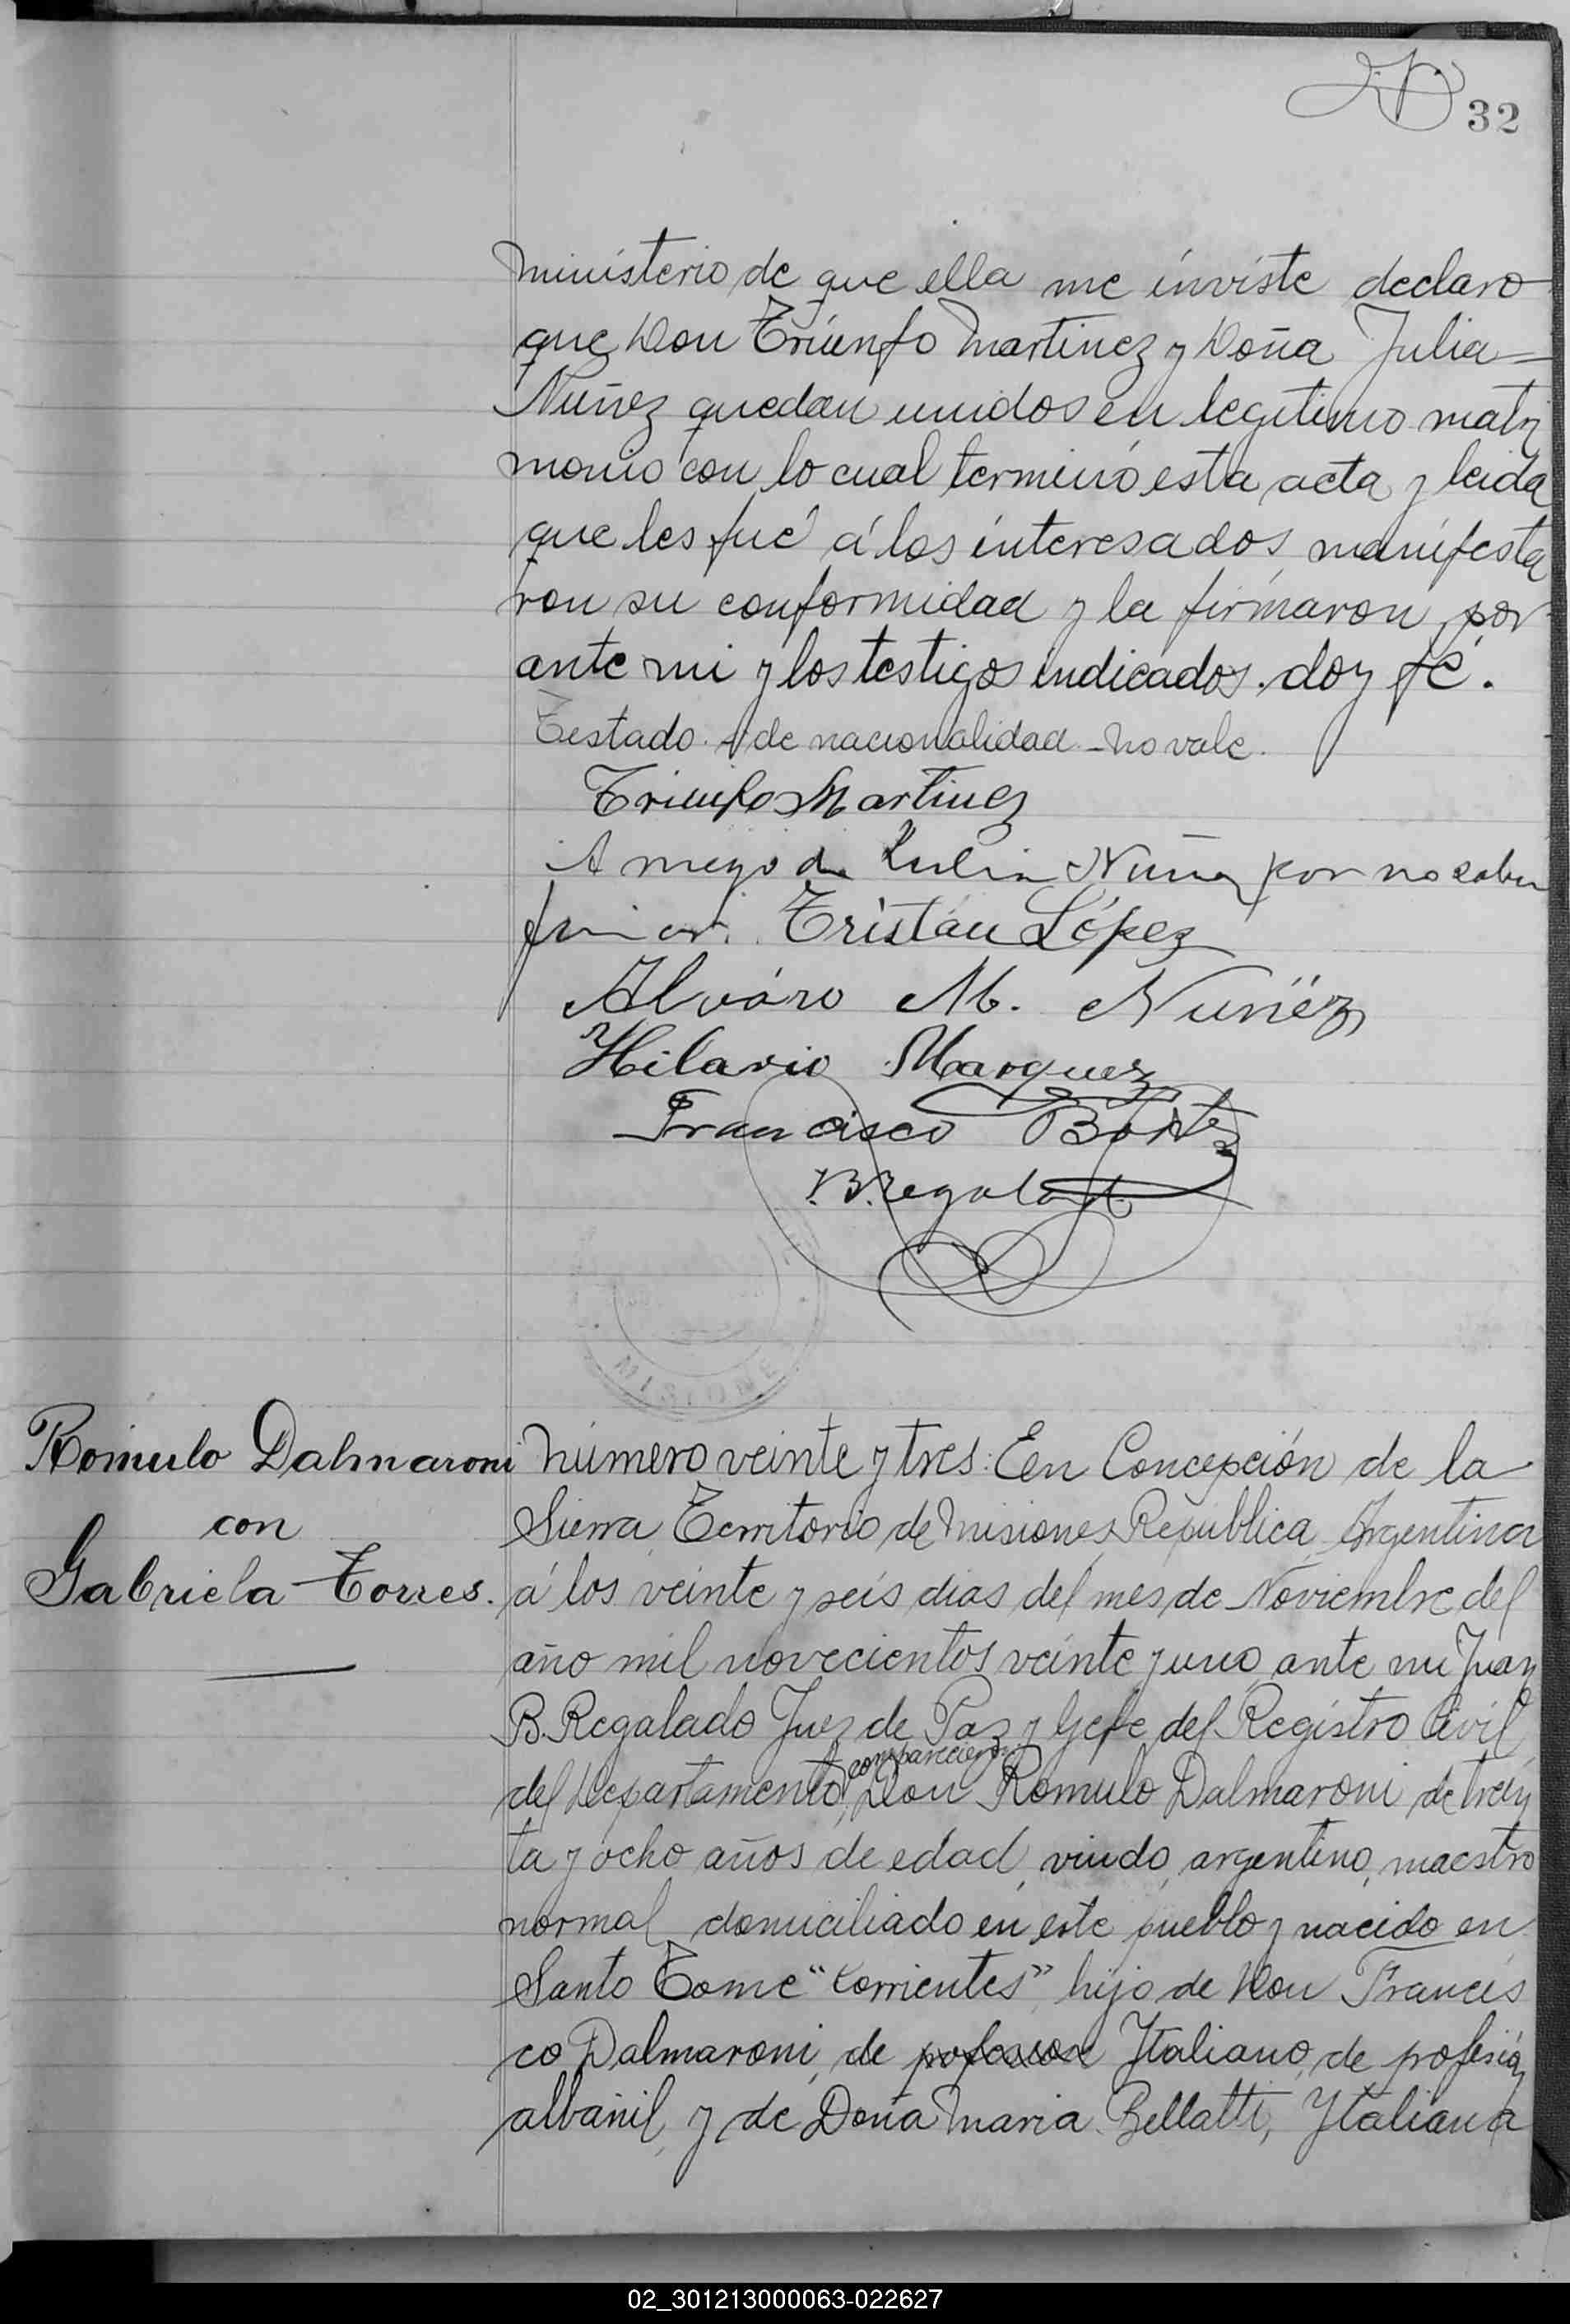 32
ministerio de que ella me inviste declaro
que Don Triunfo Martinez y Doña Julia =
Nuñez quedan unidos en legitimo matri
monio con lo cual terminó esta acta y leida
que les fué á los interesados manifesta
ron su conformidad y la firmaron por
ante mi y los testigos indicados. doy fé.
Testado - de nacionalidad - no vale.
Triunfo Martinez
A ruego de Julia Nuñez por no saber
firmar. Tristán López
Alváro M. Nuñéz
Hilario Marquez
Francisco
B. Regalado
MISIONES
Romulo Dalmaroni
con
Gabriela Torres.
Número veinte y tres: En Concepción de la
Sierra Territorio de Misiones, República Argentina
á los veinte y seis dias del mes de Noviembre del
año mil novecientos veinte y uno, ante mi Juan
B. Regalado Juez de Paz y Gefe del Registro Civil
comparecieron
del Departamento, Don Romulo Dalmaroni de trein
ta y ocho años de edad, viudo, argentino, maestro
normal, domiciliado en este pueblo y nacido en
Santo Tome "Corrientes", hijo de Don Francis
co Dalmaroni, de profesion Ytaliano, de profesión
albañil, y de Doña Maria Bellatti, Ytaliana
02_301213000063-022627